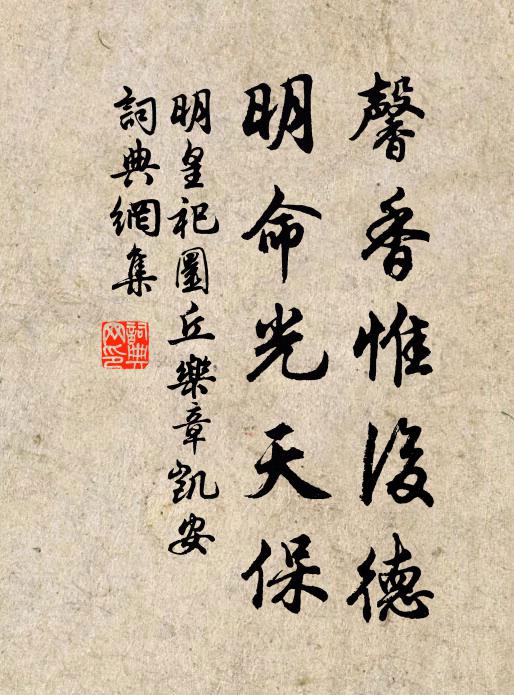 馨香惟後德
明命光天保
明皇祀圜丘樂章凱安
詞典網集
詞典网印